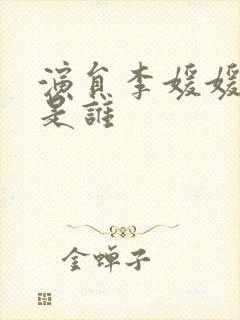 演員李媛媛
是誰
金蝉子